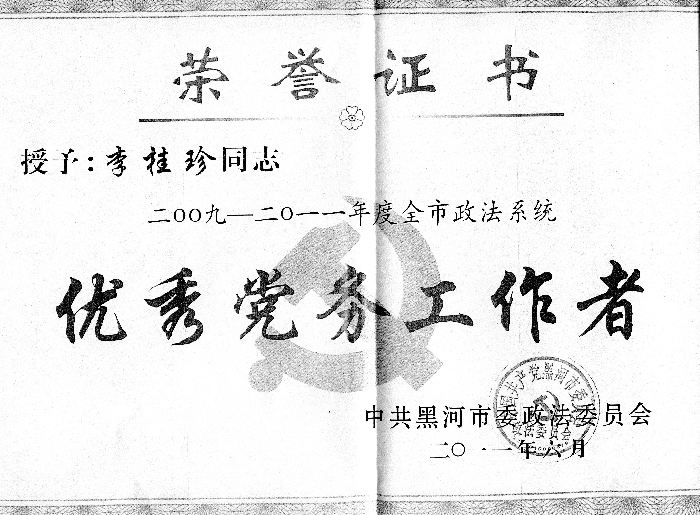 荣誉证书
授予：李桂珍同志
二〇〇九—二〇一一年度全市政法系统
优秀党务工作者
中共黑河市委政法委员会
二〇一一年六月